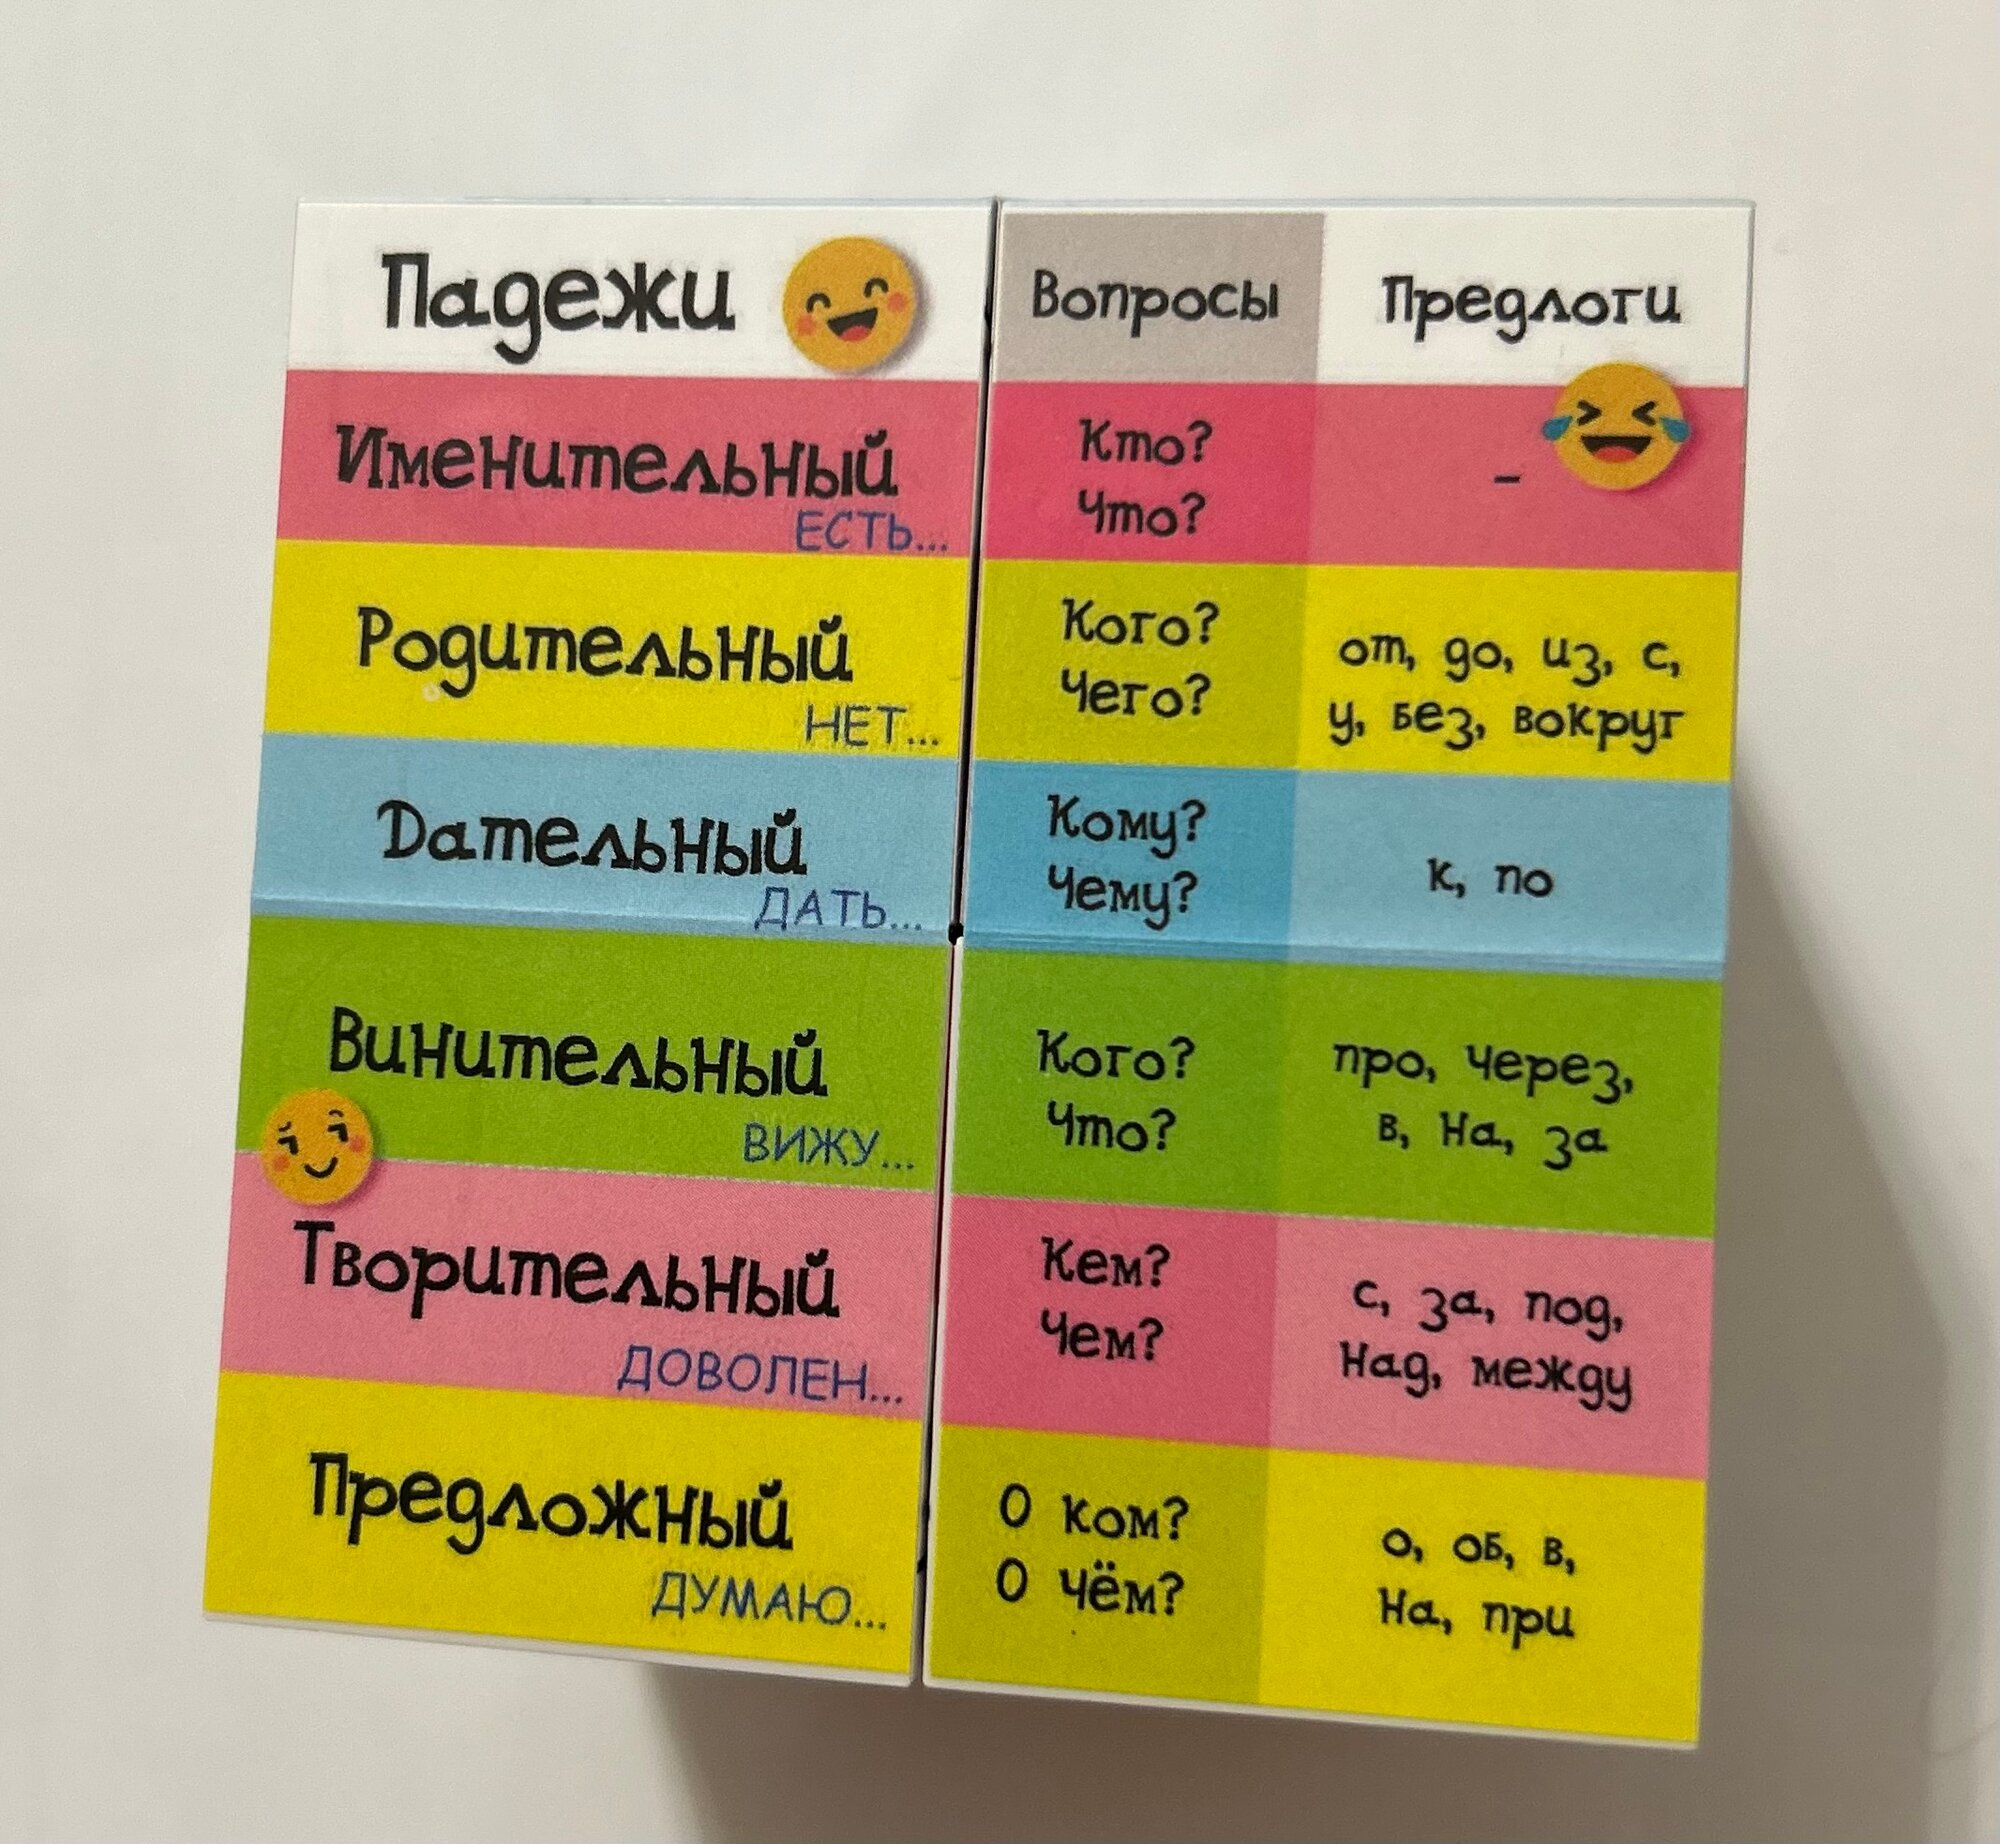 Падежи
Вопросы
Предлоги
Именительный
ЕСТЬ...
Кто?
Что?
–
Родительный
НЕТ...
Кого?
Чего?
от, до, из, с,
у, без, вокруг
Дательный
ДАТЬ...
Кому?
Чему?
к, по
Винительный
ВИЖУ...
Кого?
Что?
про, через,
в, на, за
Творительный
ДОВОЛЕН...
Кем?
Чем?
с, за, под,
над, между
Предложный
ДУМАЮ...
О ком?
О чём?
о, об, в,
на, при